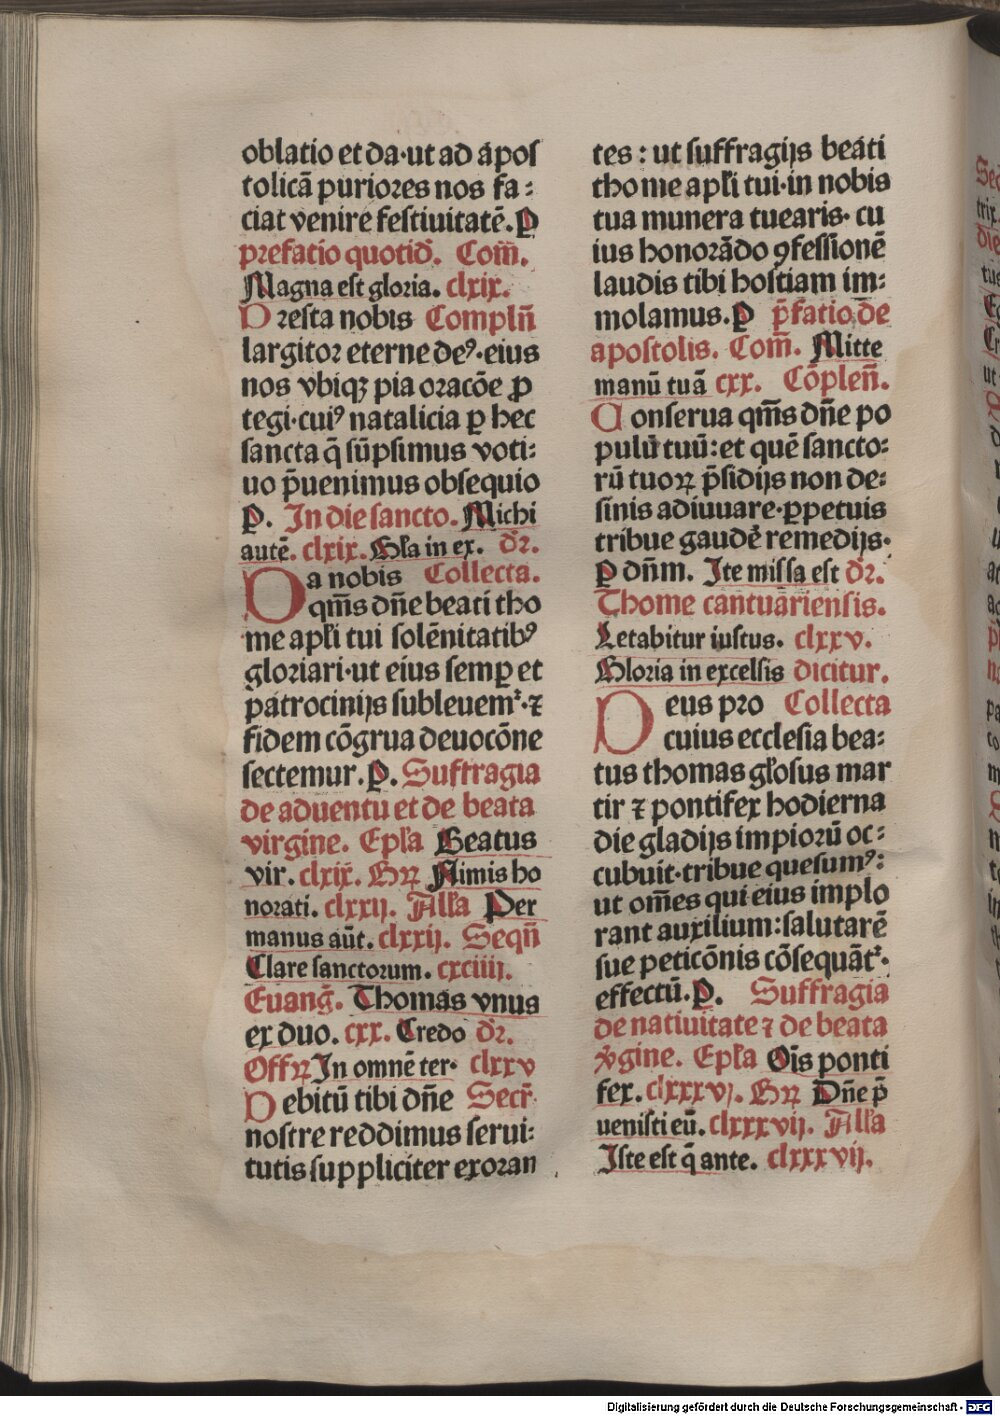 oblatio et da·ut ad apoſ
tolicā puriores nos fa:
ciat venire feſtiuitatē. P
prefatio quotid̄. Com̄.
Magna eſt gloria. clxix.
Preſta nobis Compln̄
largitor eterne deꝰ·eius
nos vbiqꝫ pia oracōe ꝓ
tegi·cuiꝰ natalicia ꝑ hec
ſancta q̄ ſūpſimus voti:
uo p̄uenimus obſequio
P. In die ſancto. Michi
autē. clxix. Gl'a in ex. dr̄.
Da nobis Collecta.
qm̄s dn̄e beati tho
me apl'i tui ſolēnitatibꝰ
gloriari·ut eius ſemꝑ et
patrocinijs ſubleuem᷑·⁊
fidem cōgrua deuocōne
ſectemur. P. Suffragia
de aduentu et de beata
virgine. Epl'a Beatus
vir. clxix. Grꝝ Nimis ho
norati. clxxij. All'a Per
manus aūt. clxxij. Seqn̄
Clare ſanctorum. cxciiij.
Euanḡ. Thomas vnus
ex duo. cxx. Credo dr̄.
Offrꝝ In omnē ter· clxxv
Debitū tibi dn̄e Secr̄·
noſtre reddimus ſerui:
tutis ſuppliciter exoran
tes: ut ſuffragijs beati
thome apl'i tui·in nobis
tua munera tuearis· cu
ius honorādo ꝯfeſſionē
laudis tibi hoſtiam im:
molamus. P p̄fatio de
apoſtolis. Com̄. Mitte
manū tuā cxx. Cōplen̄.
Conſerua qm̄s dn̄e po
pulū tuū: et quē ſancto:
rū tuoꝝ p̄ſidijs non de:
ſinis adiuuare·ꝑpetuis
tribue gaudē remedijs·
P dn̄m. Ite miſſa eſt dr̄.
Thome cantuarienſis.
Letabitur iuſtus. clxxv.
Gloria in excelſis dicitur.
Deus pro Collecta
cuius eccleſia bea:
tus thomas gl'oſus mar
tir ⁊ pontifex hodierna
die gladijs impiorū oc:
cubuit·tribue queſumꝰ:
ut om̄es qui eius implo
rant auxilium: ſalutarē
ſue peticōnis cōſequāt᷑·
effectū. P. Suffragia
de natiuitate ⁊ de beata
v̓gine. Epl'a Oīs ponti
fex. clxxxvj. Grꝝ Dn̄e p̄
ueniſti eū. clxxxvij. All'a
Iſte eſt q̄ ante. clxxxvij.
Digitalisierung gefördert durch die Deutsche Forschungsgemeinschaft · DFG